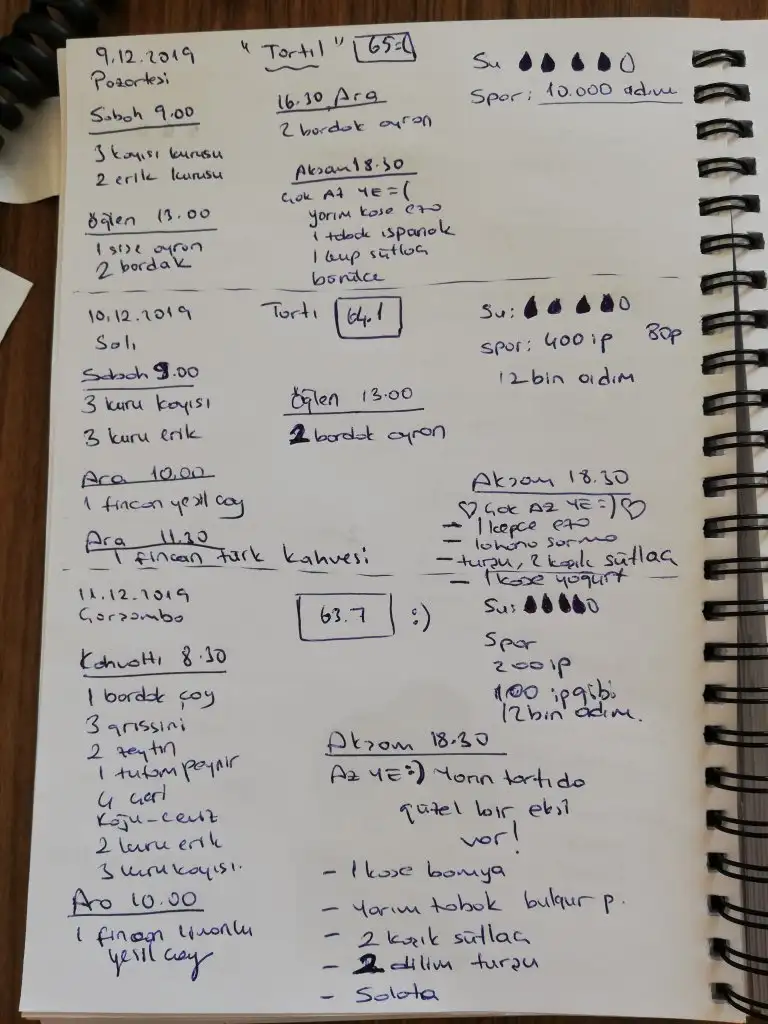 9.12.2019
Pazartesi
"Tartıl" 65=(
Su
Spor: 10.000 adım
Sabah 9.00
3 kayısı kurusu
2 erik kurusu
Öğlen 13.00
1 şişe ayran
2 bardak
16.30 Ara
2 bardak ayran
Akşam 18.30
Çok AZ YE =(
yarım kase ezo
1 tabak ıspanak
1 kup sütlaç
börülce
10.12.2019
Salı
Tartı 64.1
Su:
Spor: 400 ip
12 bin adım
Sabah 9.00
3 kuru kayısı
3 kuru erik
Ara 10.00
1 fincan yeşil çay
Ara 11.30
1 fincan türk kahvesi
Öğlen 13.00
2 bardak ayran
Akşam 18.30
♡ Çok AZ YE =) ♡
- 1 kepçe ezo
- lahana sarma
- turşu, 2 kaşık sütlaç
- 1 kase yoğurt
11.12.2019
Çarşamba
63.7 :)
Su:
Spor
200 ip
100 ip gibi
12 bin adım.
Kahvaltı 8.30
1 bardak çay
3 grissini
2 zeytin
1 tutam peynir
4 çeri
Kaju-ceviz
2 kuru erik
3 kuru kayısı.
Ara 10.00
1 fincan limonlu
yeşil çay
Akşam 18.30
AZ YE =) Yarın tartıda
güzel bir eksi
var!
- 1 kase bamya
- Yarım tabak bulgur p.
- 2 kaşık sütlaç
- 2 dilim turşu
- Salata